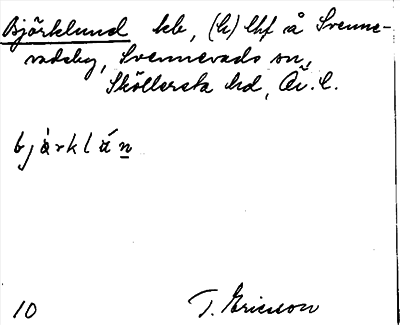 Björklund hb, (h) lhf å Svenne-
vadsby, Svennevads sn,
Sköllersta hd, Ör. l.
bjärklán
10 T. Ericson